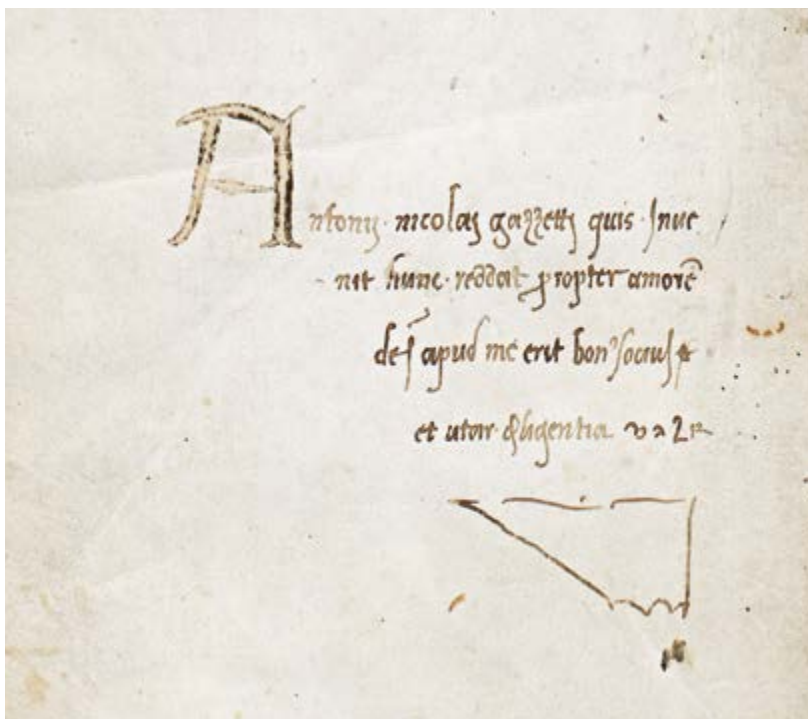 Antonij · nicolaj gazzettj quis · Jnve
nit hunc · reddat propter amorē
dej apud me erit bonꝰ sociuſ
et utar diligentia